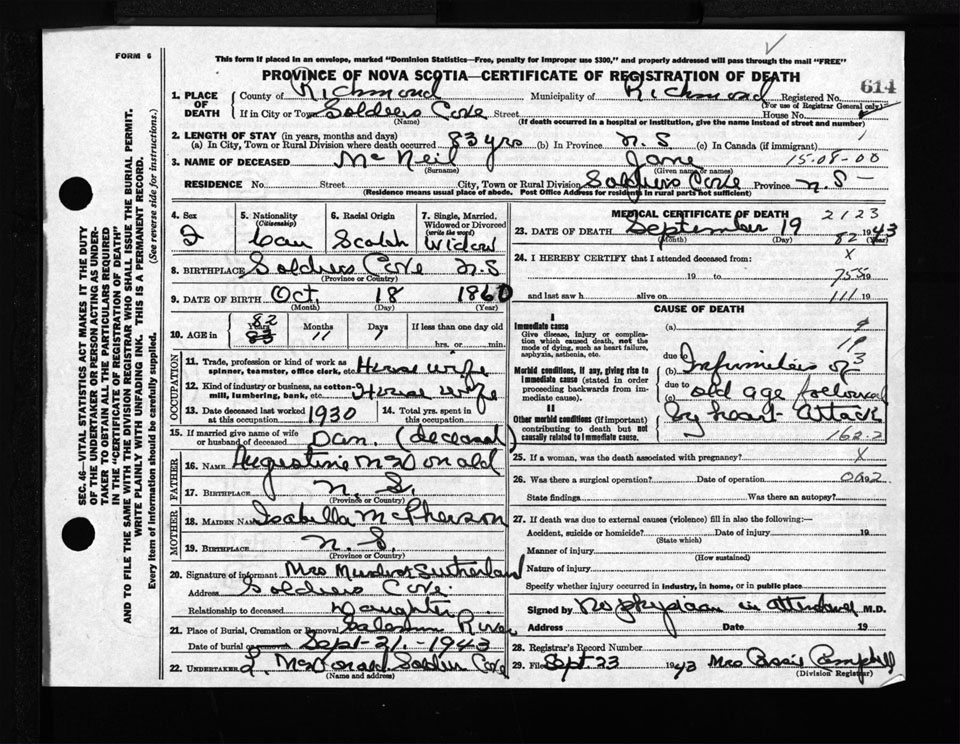 FORM 6
This form if placed in an envelope, marked "Dominion Statistics—Free, penalty for improper use $300," and properly addressed will pass through the mail "FREE"
PROVINCE OF NOVA SCOTIA—CERTIFICATE OF REGISTRATION OF DEATH
614
1. PLACE OF DEATH
County of Richmond Municipality of Richmond Registered No.
(For use of Registrar General only)
If in City or Town Soldiers Cove Street House No.
(Name) (If death occurred in a hospital or institution, give the name instead of street and number)
2. LENGTH OF STAY (in years, months and days)
(a) In City, Town or Rural Division where death occurred 83 yrs (b) In Province N.S (c) In Canada (if immigrant)
3. NAME OF DECEASED McNeil Jane 15-08-00
(Surname) (Given name or names)
RESIDENCE No. Street City, Town or Rural Division Soldiers Cove Province N.S—
(Residence means usual place of abode. Post Office Address for residents in rural parts not sufficient)
4. Sex
5. Nationality (Citizenship) Can
6. Racial Origin Scotch
7. Single, Married, Widowed or Divorced (write the word) Widow
8. BIRTHPLACE Soldiers Cove N.S
(Province or Country)
9. DATE OF BIRTH Oct. 18 1860
(Month) (Day) (Year)
10. AGE in 82 83 Years 11 Months 1 Days If less than one day old hrs. or min.
OCCUPATION
11. Trade, profession or kind of work as spinner, teamster, office clerk, etc. House wife
12. Kind of industry or business, as cotton-mill, lumbering, bank, etc. House wife
13. Date deceased last worked at this occupation 1930
14. Total yrs. spent in this occupation
15. If married give name of wife or husband of deceased Dan. (deceased)
FATHER
16. NAME Augustine McDonald
17. BIRTHPLACE N.S.
(Province or Country)
MOTHER
18. MAIDEN NAME Isabella McPherson
19. BIRTHPLACE N.S.
(Province or Country)
20. Signature of informant Mrs Murdoch Sutherland
Address Soldiers Cove
Relationship to deceased Daughter
21. Place of Burial, Cremation or Removal Salmon River
Date of burial or removal Sept-21.-1943
22. UNDERTAKER McDonald Soldiers Cove
(Name and address)
MEDICAL CERTIFICATE OF DEATH 2123
23. DATE OF DEATH September 19 1943
(Month) (Day) (Year)
82
24. I HEREBY CERTIFY that I attended deceased from: X
19 to 755 19
and last saw h alive on 111 19
CAUSE OF DEATH
I
Immediate cause
Give disease, injury or complication which caused death, not the mode of dying, such as heart failure, asphyxia, asthenia, etc.
(a)
due to
Morbid conditions, if any, giving rise to immediate cause (stated in order proceeding backwards from immediate cause).
(b) Infirmities of
due to
(c) old age followed
by heart attack
II
Other morbid conditions (if important) contributing to death but not causally related to immediate cause.
162-2
25. If a woman, was the death associated with pregnancy? X
26. Was there a surgical operation? Date of operation
State findings Was there an autopsy?
27. If death was due to external causes (violence) fill in also the following:—
Accident, suicide or homicide? Date of injury 19
(State which)
Manner of injury
(How sustained)
Nature of injury
Specify whether injury occurred in industry, in home, or in public place
Signed by No physician in attendance M.D.
Address Date 19
28. Registrar's Record Number
29. Filed Sept 23 1943 Mrs Campbell
(Division Registrar)
SEC. 46—VITAL STATISTICS ACT MAKES IT THE DUTY OF THE UNDERTAKER OR PERSON ACTING AS UNDERTAKER TO OBTAIN ALL THE PARTICULARS REQUIRED IN THE "CERTIFICATE OF REGISTRATION OF DEATH" AND TO FILE THE SAME WITH THE DIVISION REGISTRAR WHO SHALL ISSUE THE BURIAL PERMIT.
WRITE PLAINLY WITH UNFADING INK. THIS IS A PERMANENT RECORD.
Every item of information should be carefully supplied. (See reverse side for instructions.)